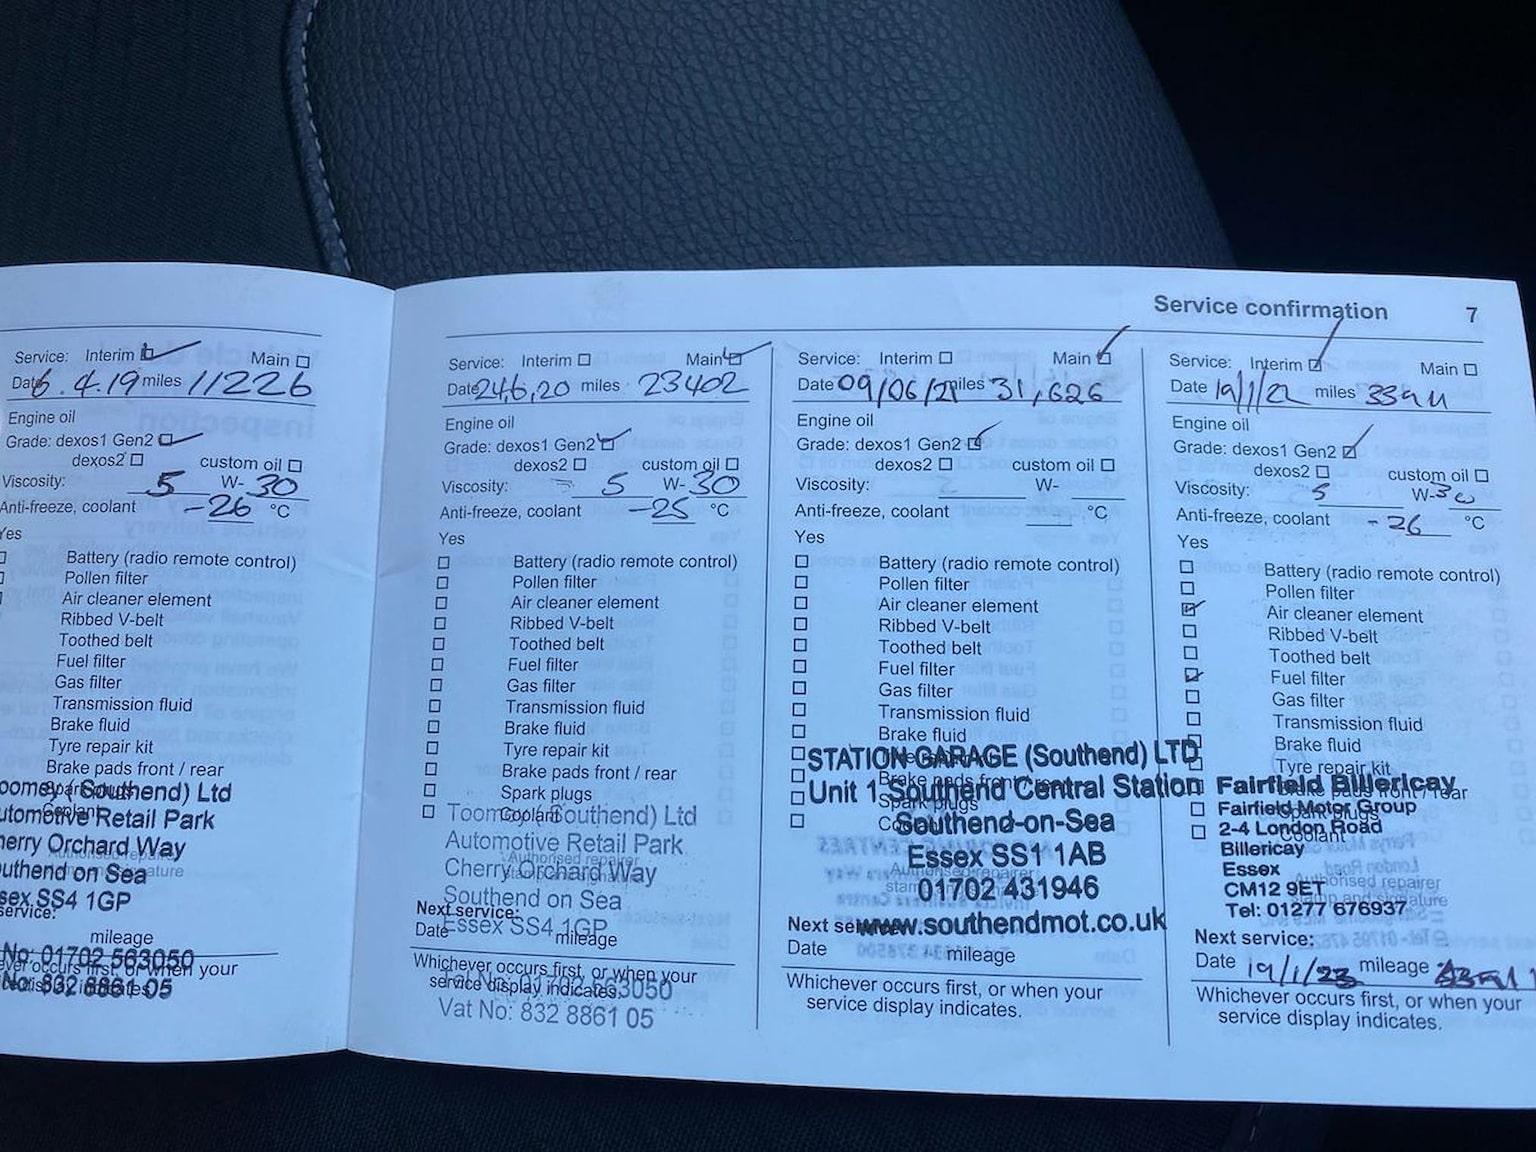 Service: Interim Main
Date 6.4.19 miles 11226
Engine oil
Grade: dexos1 Gen2
dexos2 custom oil
Viscosity: 5 W-30
Anti-freeze, coolant -26 °C
Yes
Battery (radio remote control)
Pollen filter
Air cleaner element
Ribbed V-belt
Toothed belt
Fuel filter
Gas filter
Transmission fluid
Brake fluid
Tyre repair kit
Brake pads front / rear
Spark plugs
Coolant
oomey (Southend) Ltd
utomotive Retail Park
herry Orchard Way
uthend on Sea
sex SS4 1GP
service:
mileage
No: 01702 563050
ver occurs first, or when your
No: 832 8861 05
Service confirmation 7
Service: Interim Main
Date 24,6,20 miles 23402
Engine oil
Grade: dexos1 Gen2
dexos2 custom oil
Viscosity: 5 W-30
Anti-freeze, coolant -25 °C
Yes
Battery (radio remote control)
Pollen filter
Air cleaner element
Ribbed V-belt
Toothed belt
Fuel filter
Gas filter
Transmission fluid
Brake fluid
Tyre repair kit
Brake pads front / rear
Spark plugs
Coolant
Toomey (Southend) Ltd
Automotive Retail Park
Authorised repairer
Cherry Orchard Way
Southend on Sea
Next service:
Essex SS4 1GP
Date mileage
Whichever occurs first, or when your
service display indicates.
01702 563050
Vat No: 832 8861 05
Service: Interim Main
Date 09/06/21 miles 31,626
Engine oil
Grade: dexos1 Gen2
dexos2 custom oil
Viscosity: W-
Anti-freeze, coolant °C
Yes
Battery (radio remote control)
Pollen filter
Air cleaner element
Ribbed V-belt
Toothed belt
Fuel filter
Gas filter
Transmission fluid
Brake fluid
STATION GARAGE (Southend) LTD
Brake pads front
Unit 1 Southend Central Station
Spark plugs
Southend-on-Sea
Essex SS1 1AB
Authorised repairer
01702 431946
Next
www.southendmot.co.uk
Date mileage
Whichever occurs first, or when your
service display indicates.
Service: Interim Main
Date 19/1/22 miles
Engine oil
Grade: dexos1 Gen2
dexos2 custom oil
Viscosity: 5 W-30
Anti-freeze, coolant -26 °C
Yes
Battery (radio remote control)
Pollen filter
Air cleaner element
Ribbed V-belt
Toothed belt
Fuel filter
Gas filter
Transmission fluid
Brake fluid
Tyre repair kit
Brake pads front / rear
Fairfield Billericay
Fairfield Motor Group
Spark plugs
2-4 London Road
Coolant
Billericay
Essex
CM12 9ET
Authorised repairer
stamp and signature
Tel: 01277 676937
Next service:
Date 19/1/23 mileage
Whichever occurs first, or when your
service display indicates.